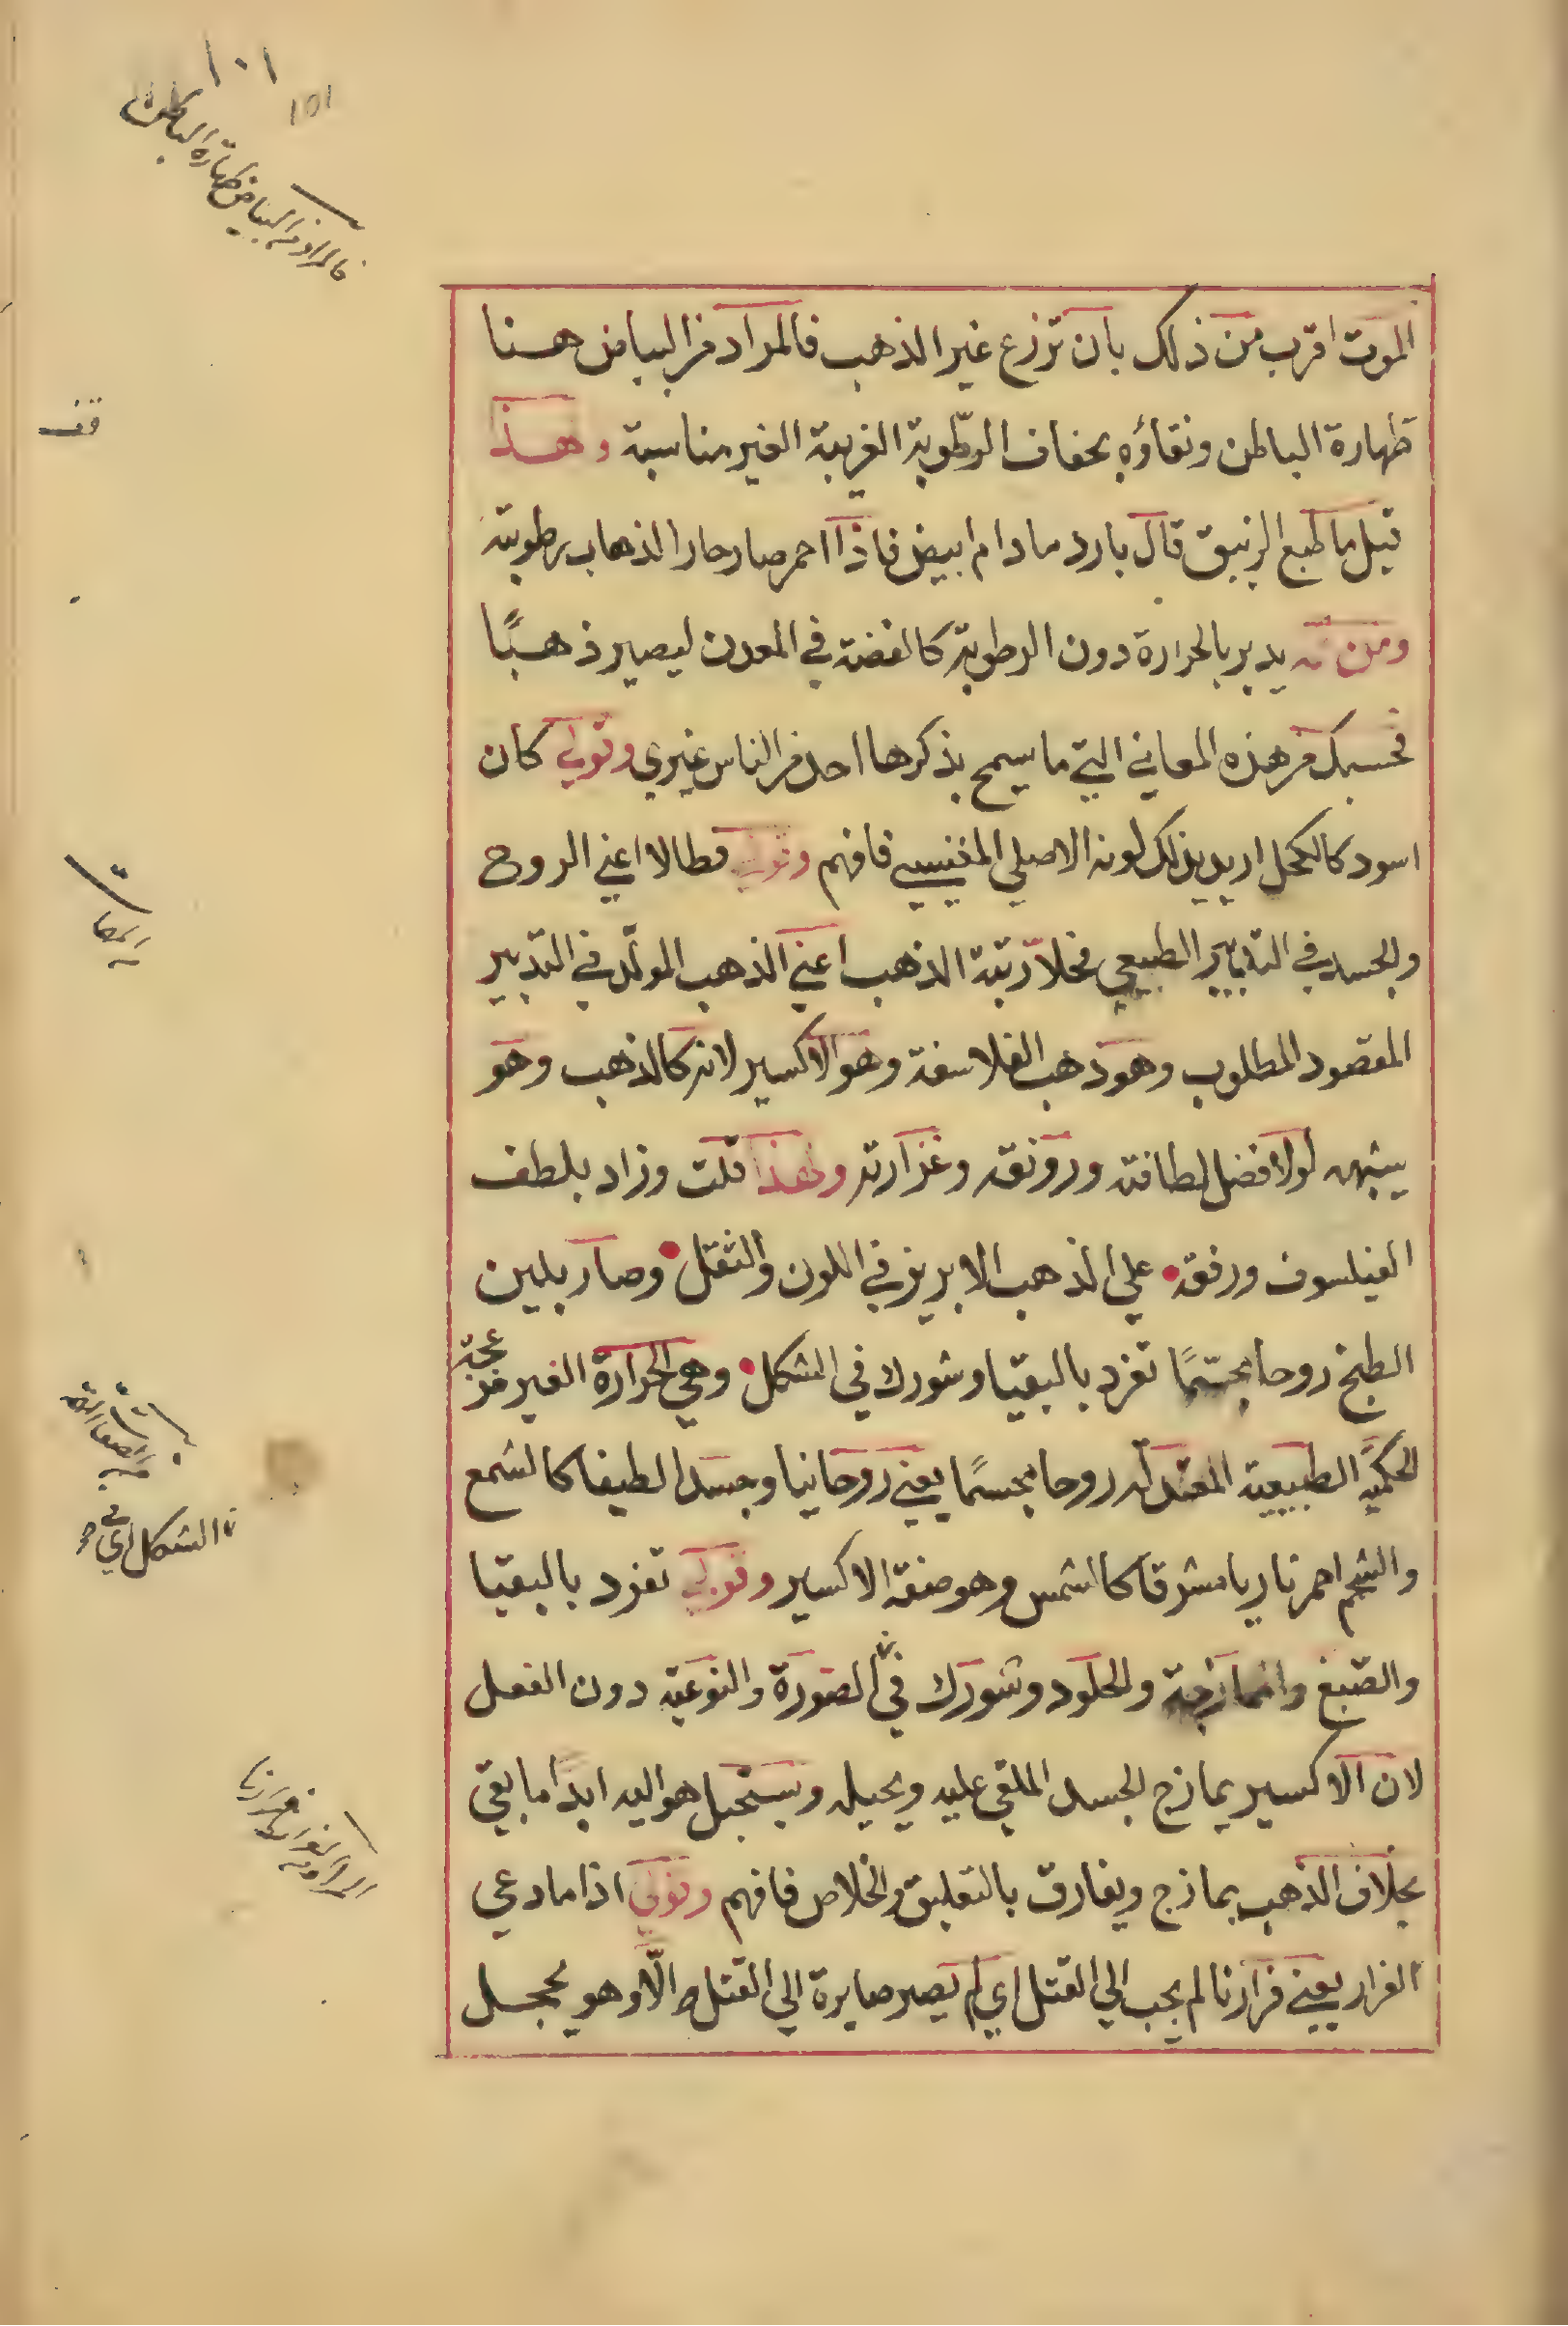 ١٠١
101
فالمراد من البياض طهارة الباطن
الموت اقرب من ذلك بان تزرع غير الذهب فالمراد من البياض هنا
طهارة الباطن ونقاؤه بجفاف الرطوبة الغريبة الغير مناسبة وهذا
قف
قيل ما طبع الزيبق قال بارد مادام ابيض فاذا احمر صار حارا لذهاب رطوبته
ومن ثمه يدبر بالحرارة دون الرطوبة كالفضة في المعدن ليصير ذهبًا
فحسبك من هذه المعاني التي ما يسمح بذكرها احد من الناس غيري وقولي كان
اسود كالكحل اريد بذلك لونه الاصلي المغنيسي فافهم وقولي فطالا اعني الروح
والجسد في التدبير الطبيعي فخلا رتبة الذهب اعني الذهب المولّد في التدبير
المقصود المطلوب وهو ذهب الفلاسفة وهو الاكسير لانه كالذهب وهو
يشبهه لولا فضل لطافته ورونقه وغزارته ولهذا قلت وزاد بلطف
الفيلسوف ورفقه على الذهب الابريز في اللون والثقل وصار بلين
الطبخ روحا مجسّمًا تفرد بالبقيا وشورك في الشكل وهي الحرارة الغير مزعجة
الحكميّة الطبيعية المعتدلة روحا مجسمًا يعني روحانيا وجسدا لطيفا كالشمع
ن الشكل اي في
والشحم احمر ناريا مشرقا كالشمس وهو صفة الاكسير وقولي تفرد بالبقيا
والصبغ والممازجة والخلود وشورك في الصورة والنوعية دون الفعل
لان الاكسير يمازج الجسد الملقى عليه ويحيله ويستحيل هو اليه ابدا ما بقي
المراد من الفرار فرارنا
بخلاف الذهب يمازج ويفارق بالتعليق والخلاص فافهم وقولي اذا ما دعي
الفرار يعني فرارنا لم يجب الي القتل اي لم يصير صايرة الي القتل والّا وهو يحجل